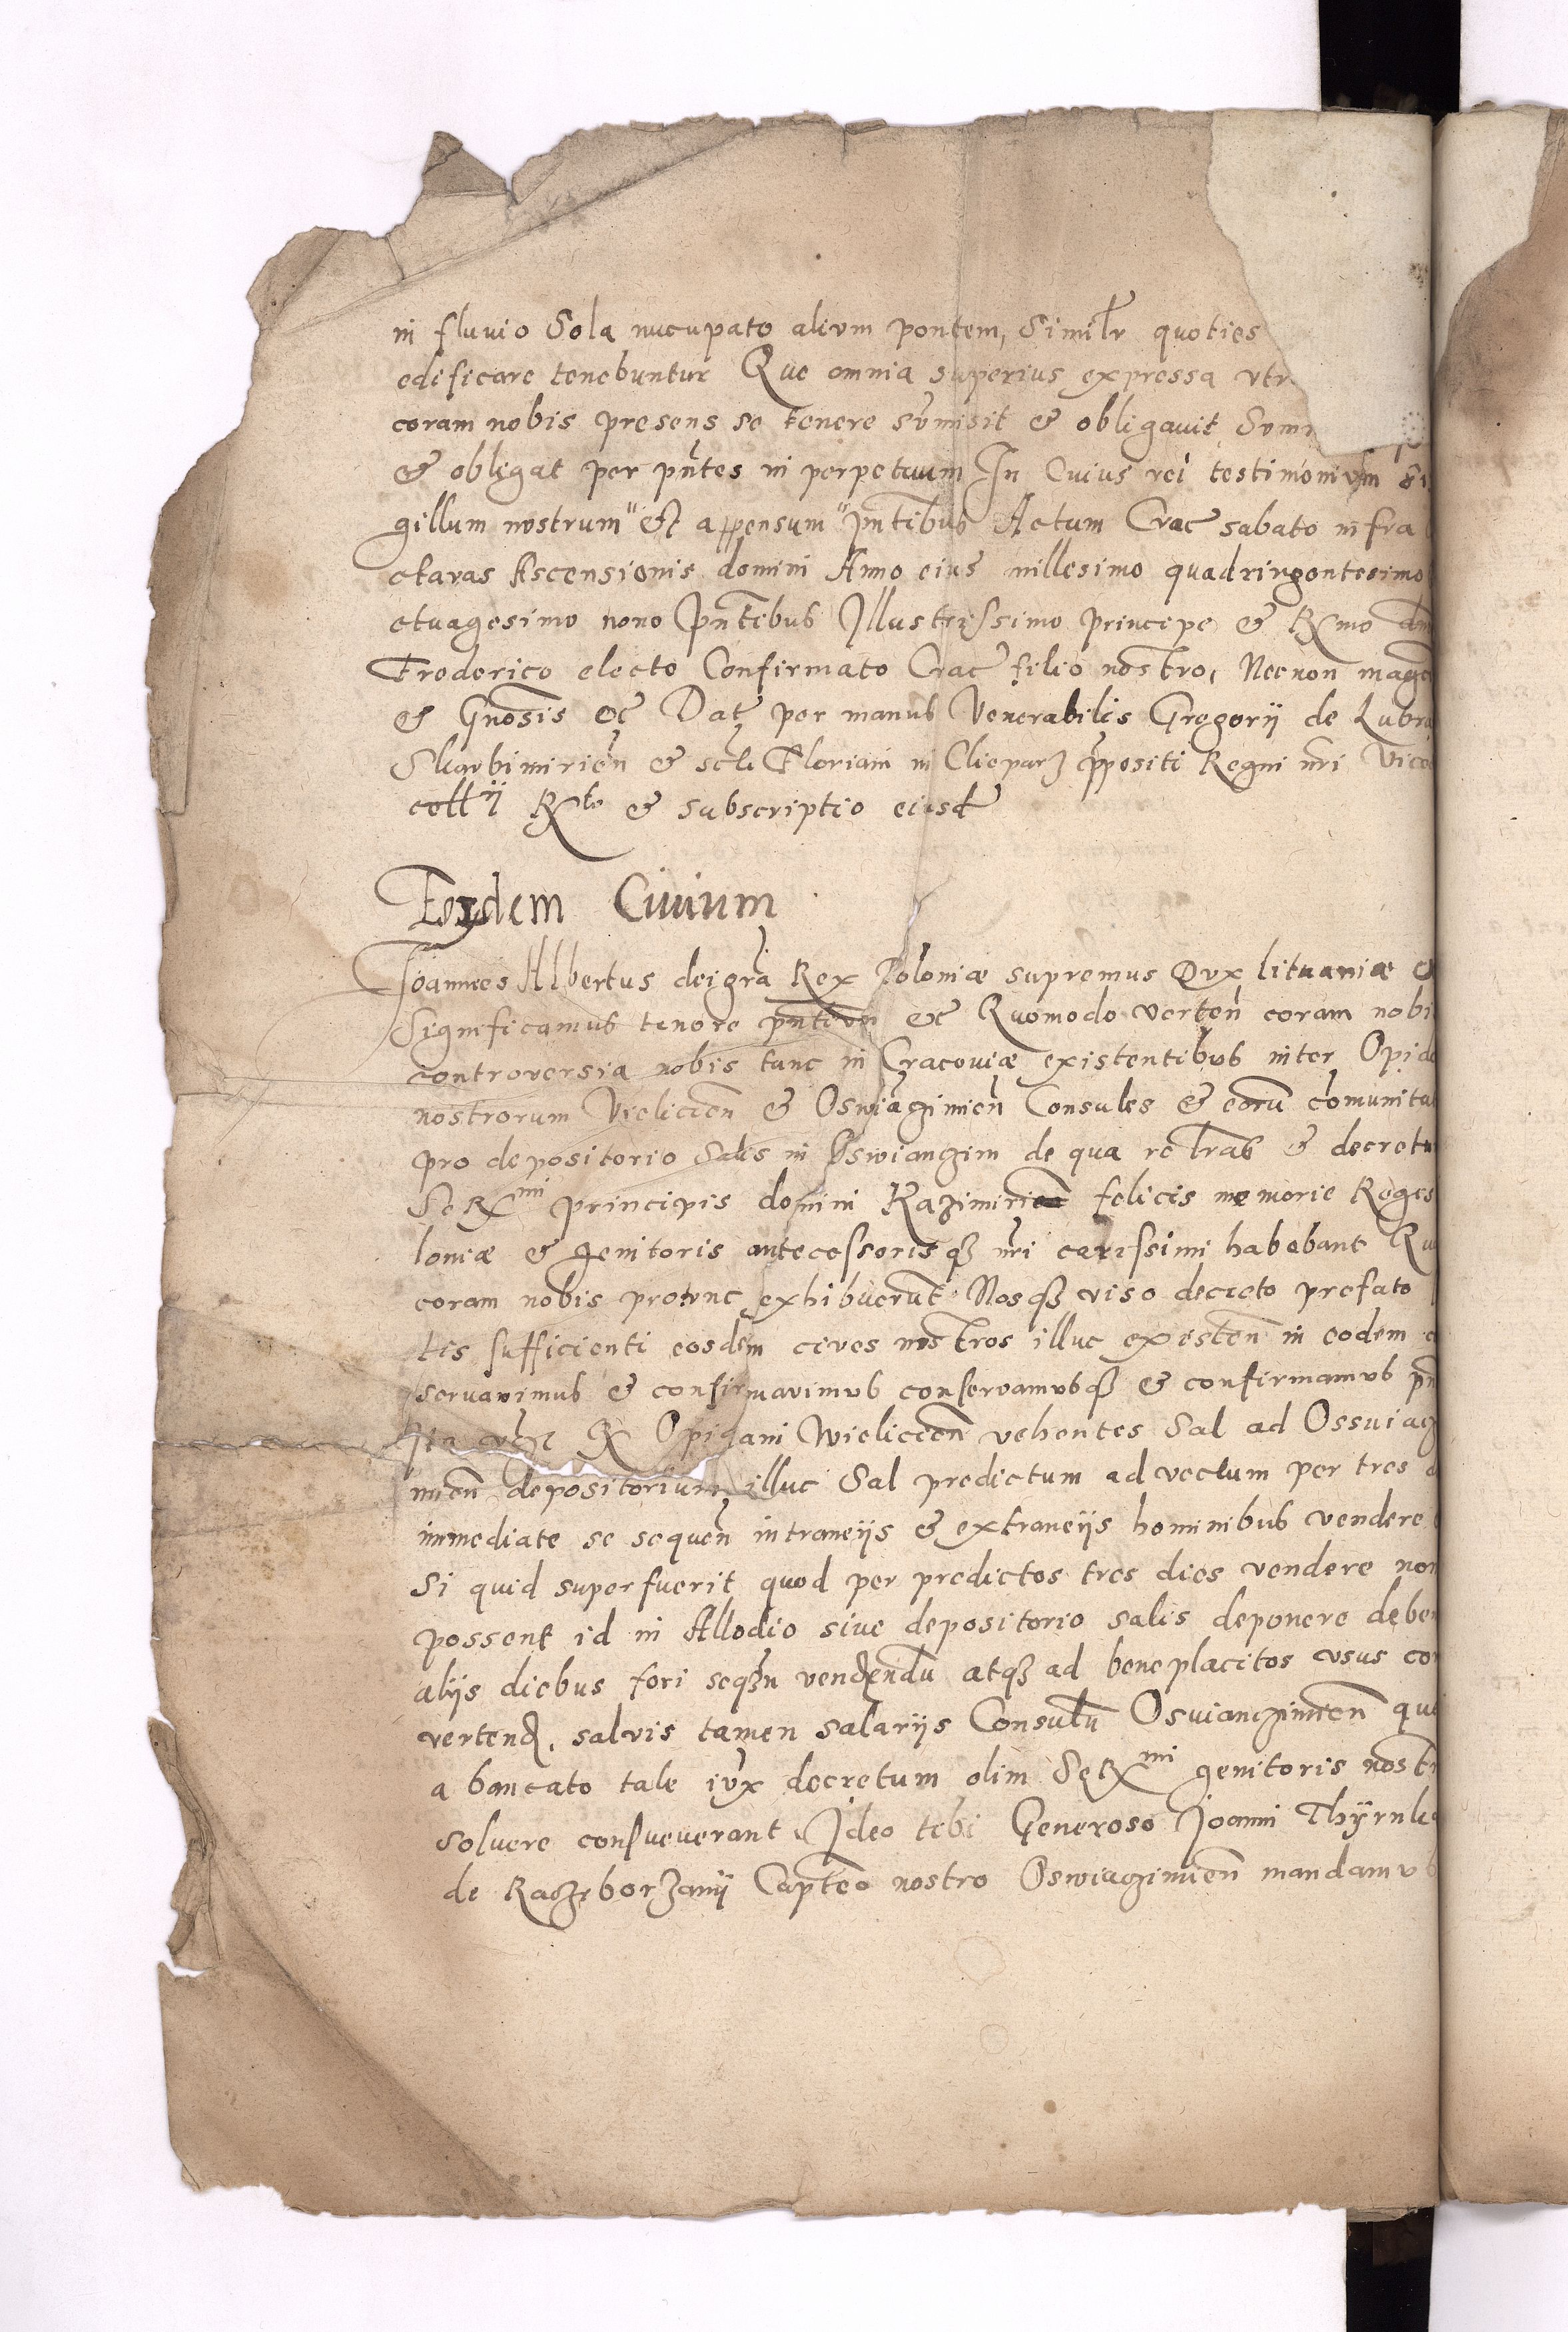 in fluvio Sola nucupato alium pontem, Similr quoties
edificare tenebuntur Que omnia superius expressa vtr
coram nobis presens se tenere sumisit & obligauit Sum
& obligat per pntes in perpetuum In Cuius rei testimonium Si
gillum nostrum est appensum pntibus Actum Crac sabato infra
ctavas Ascensionis domini Anno eius millesimo quadringentesimo
ctuagesimo nono pntibus Illustrissimo principe & Rmo dn
Frederico electo Confirmato Crac filio nostro, Necnon mag
& Gnosis &c Dat per manus Venerabilis Gregorij de Lubra
Skarbimirien & scti Floriani in Cliepar3 ppositi Regni nri Vice
cellij Rlo & subscriptio eiusd
Eosdem Ciuium
Joannes Albertus dei gra Rex Poloniæ supremus Dux lituaniæ &
Significamus tenore pntium &c Quomodo verten coram nobi
controversia nobis tunc in Cracouiæ existentibus inter Opid
nostrorum Vieliccen & Oswiaczimien Consules & eoru comunita
pro depositorio Salis in Oswianczim de qua re lras & decretu
Sermi principis domini Kazimiri felicis memorie Regis
loniæ & genitoris antecessorisq3 nri carissimi habebant Qu
coram nobis protunc exhibuerunt Nosq3 viso decreto prefato
tis sufficienti eosdem cives nostros illuc existen in eodem
servavimus & confirmavimus conservamusq3 & confirmamus pn
Opidani Wieliccen vehentes Sal ad Ossuiacz
mien depositorium illuc Sal predictum advectum per tres
immediate se sequen intraneijs & extraneijs hominibus vendere
Si quid superfuerit quod per predictos tres dies vendere non
possent id in Allodio sive depositorio salis deponere debe
alijs diebus fori seq3n vendendu atq3 ad beneplacitos vsus con
vertend, salvis tamen salarijs Consulu Osvianczimien qu
a bancato tale iux decretum olim Sermi genitoris nostr
solvere consueverant Ideo tibi Generoso Joanni Thyrnk
de Raczborzanij Capteo nostro Oswiaczimien mandamus